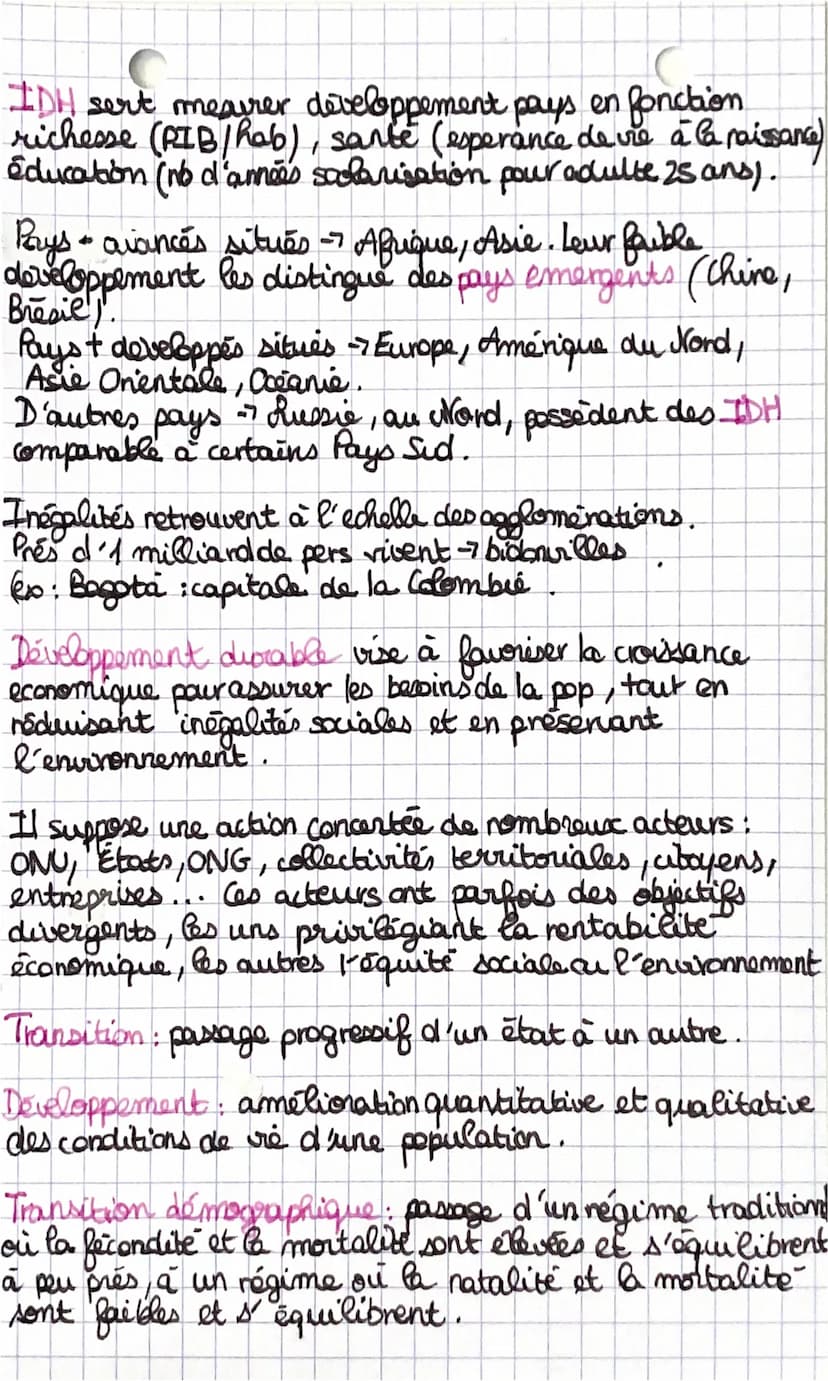 IDH sert mesurer développement pays en fonction
richesse (PIB/hab), santé (esperance de vie à la naissance)
Education (nb d'années scolarisation pour adulte 25 ans).
Pays - avancés situés → Afrique, Asie. Leur faible
développement les distingue des pays emergents (Chine,
Brésil).
Pays + developpés situés → Europe, Amérique du Nord,
Asie Orientale, Océanie.
D'autres pays → Russie, au Nord, possèdent des IDH
comparable à certains Pays Sud.
Inégalités retrouvent à l'echelle des agglomérations.
Près d'1 milliard de pers vivent → bidonvilles
Ex : Bogota : capitale de la Colombie.
Développement durable vise à favoriser la croissance
economique pour assurer les besoins de la pop, tout en
réduisant inégalités sociales et en préservant
l'environnement.
Il suppose une action concertée de nombreux acteurs :
ONU, États, ONG, collectivités territoriales, citoyens,
entreprises... Ces acteurs ont parfois des objectifs
divergents, les uns privilégiant la rentabilité
économique, les autres l'équité sociale ou l'environnement
Transition : passage progressif d'un état à un autre.
Développement : amélioration quantitative et qualitative
des conditions de vie d'une population.
Transition démographique : passage d'un régime traditionnel
où la fécondité et la mortalité sont élevées et s'équilibrent
à peu près, à un régime où la natalité et la mortalité
sont faibles et s'équilibrent.